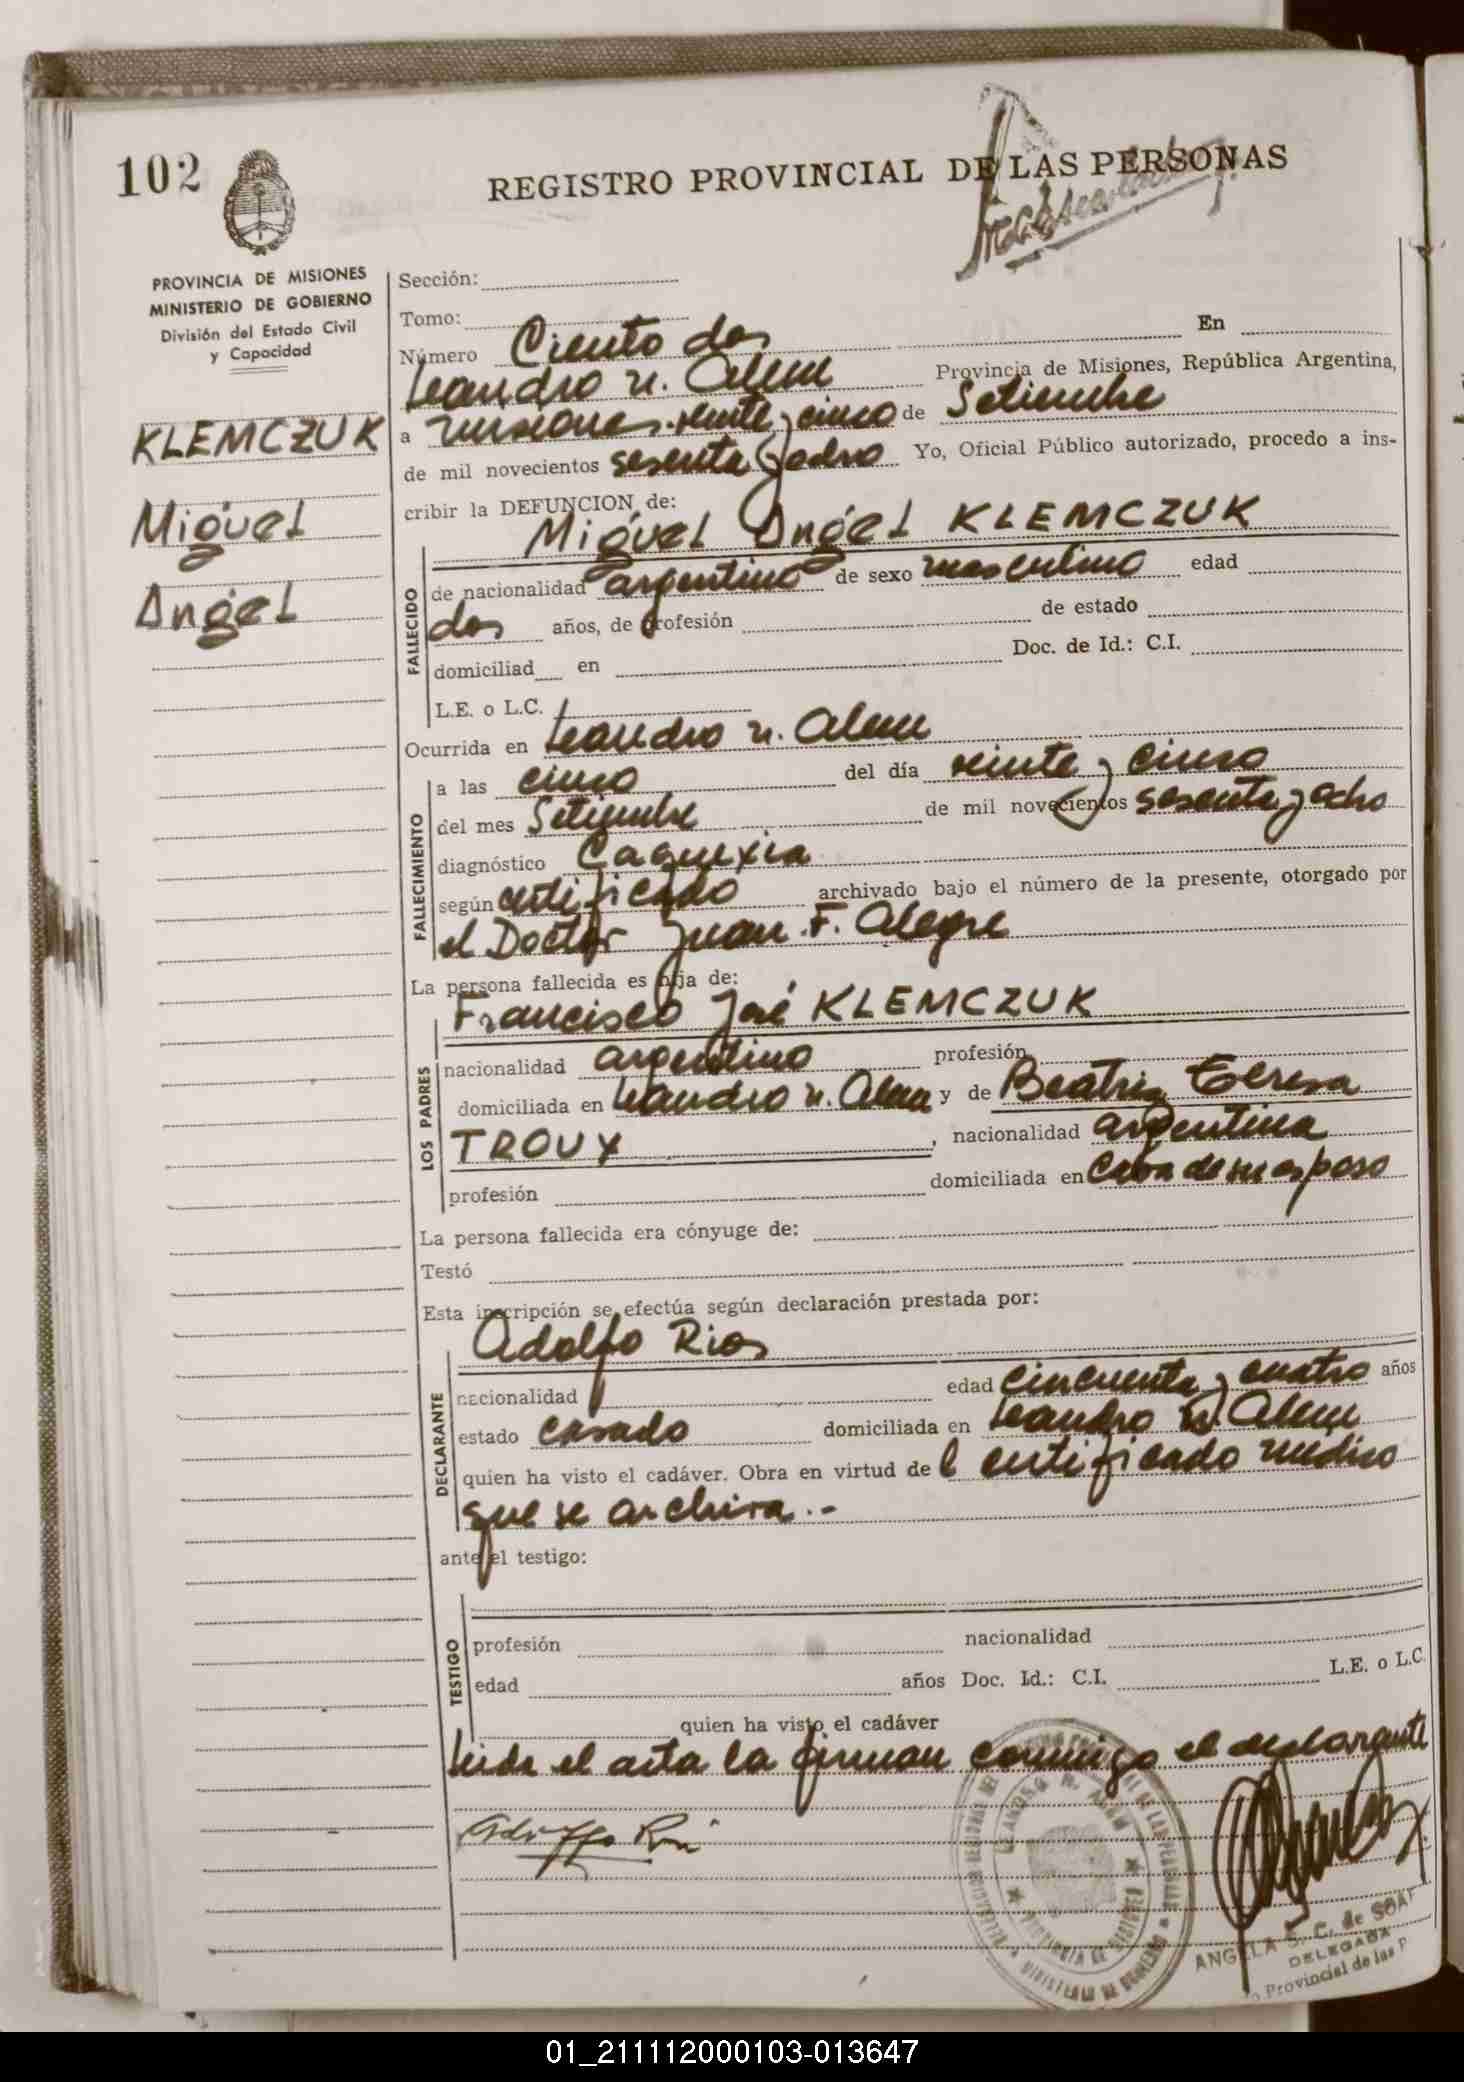 102
REGISTRO PROVINCIAL DE LAS PERSONAS
PROVINCIA DE MISIONES
MINISTERIO DE GOBIERNO
División del Estado Civil
y Capacidad
KLEMCZUK
Miguel
Angel
Sección:
Tomo:
Número Ciento dos En
Leandro N. Alem Provincia de Misiones, República Argentina,
a misiones veinte y cinco de Setiembre
de mil novecientos sesenta y ocho Yo, Oficial Público autorizado, procedo a ins-
cribir la DEFUNCION de:
Miguel Angel KLEMCZUK
FALLECIDO
de nacionalidad argentino de sexo masculino edad
dos años, de profesión de estado
domiciliad en Doc. de Id.: C.I.
L.E. o L.C.
Ocurrida en Leandro N. Alem
FALLECIMIENTO
a las cinco del día veinte y cinco
del mes Setiembre de mil novecientos sesenta y ocho
diagnóstico Caquexia
según certificado archivado bajo el número de la presente, otorgado por
el Doctor Juan F. Alegre
La persona fallecida es hija de:
LOS PADRES
Francisco José KLEMCZUK
nacionalidad argentino profesión
domiciliada en Leandro N. Alem y de Beatriz Teresa
TROUX, nacionalidad argentina
profesión domiciliada en Casa de su esposo
La persona fallecida era cónyuge de:
Testó
Esta inscripción se efectúa según declaración prestada por:
DECLARANTE
Adolfo Rios
nacionalidad edad cincuenta y cuatro años
estado casado domiciliada en Leandro N. Alem
quien ha visto el cadáver. Obra en virtud de l certificado médico
que se archiva.-
ante el testigo:
TESTIGO
profesión nacionalidad
edad años Doc. Id.: C.I. L.E. o L.C.
quien ha visto el cadáver
Leida el acta la firman conmigo el declarante
Adolfo Rios
LEANDRO N. ALEM
PROVINCIA DE MISIONES
MINISTERIO DE GOBIERNO
ANGELA S. C. de
DELEGADA
Provincial de las P
01_211112000103-013647